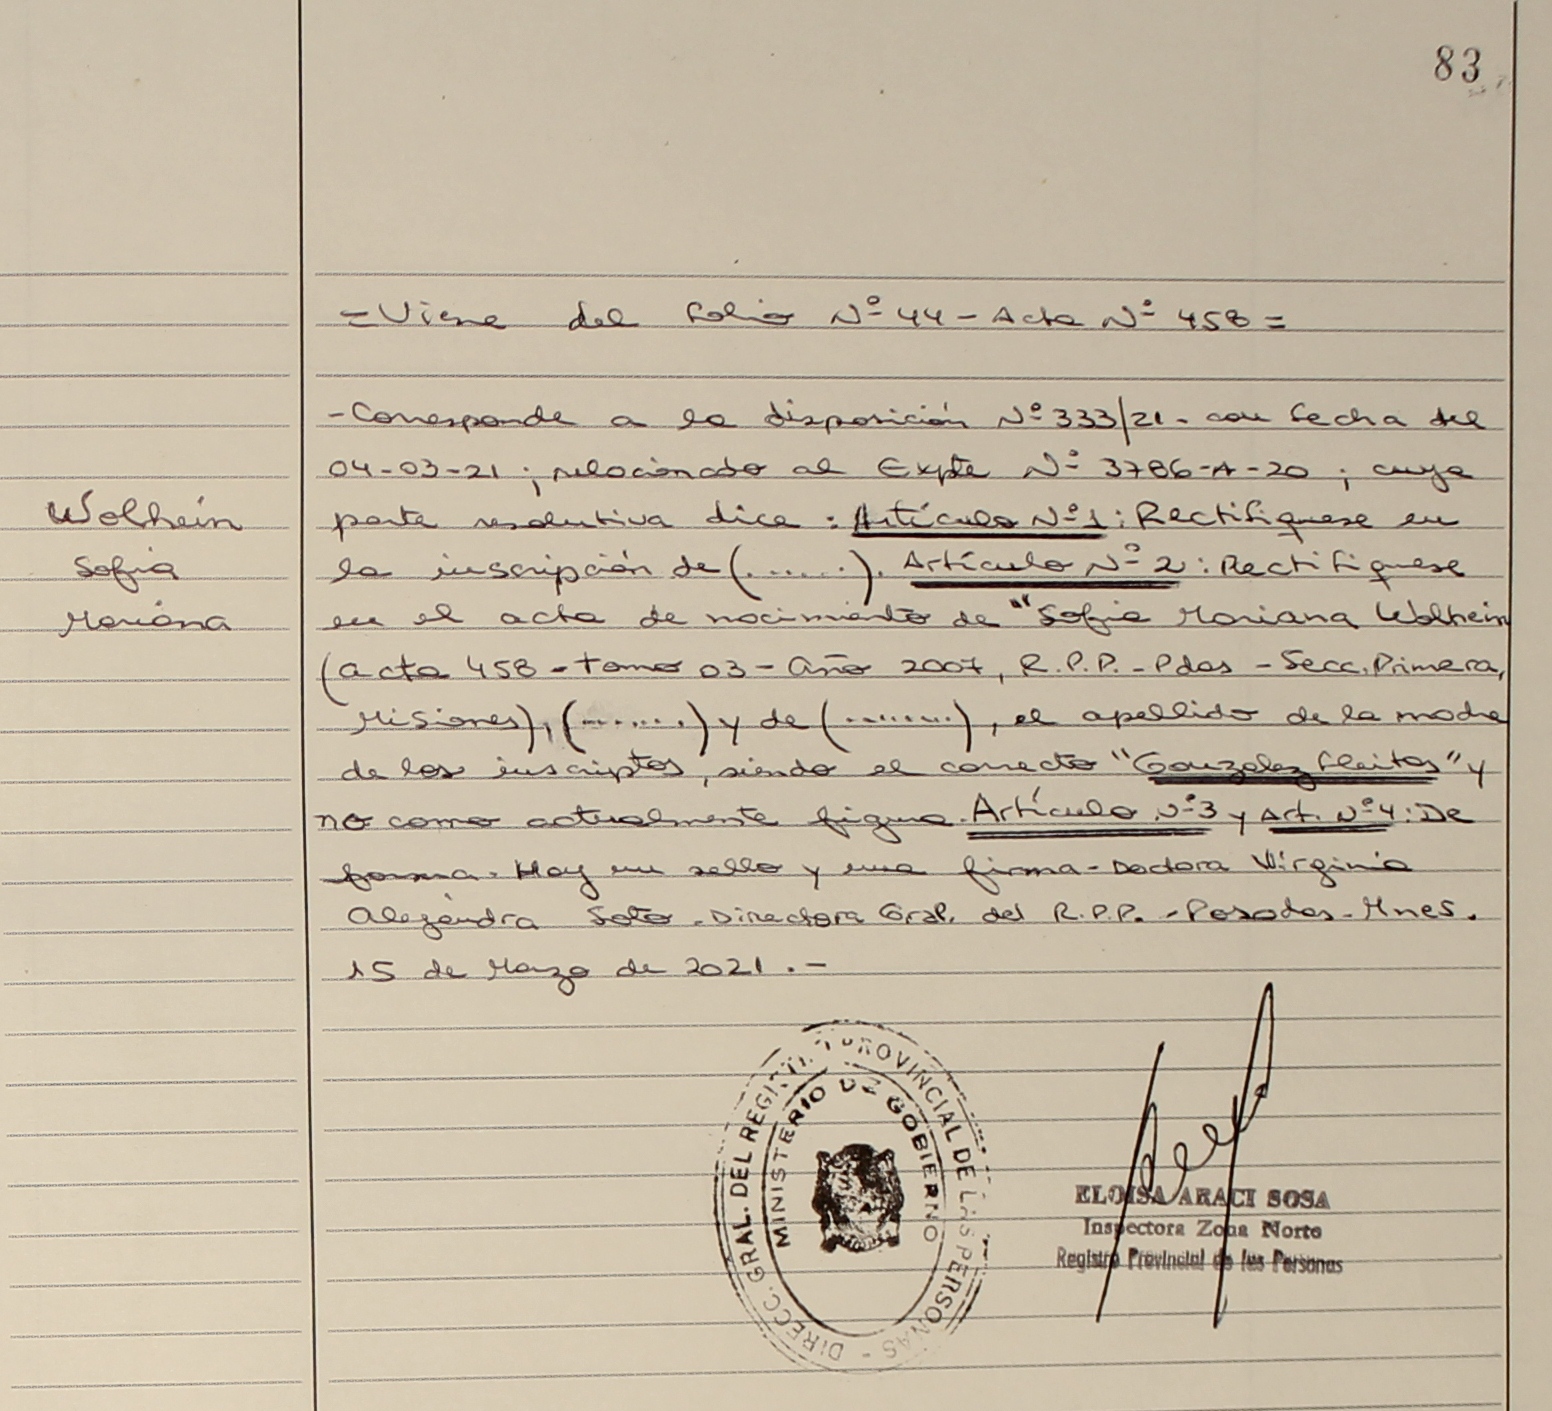 83
= Viene del folio Nº 44 - Acta Nº 458 =
- Corresponde a la disposición Nº 333/21 - con fecha del
04-03-21 ; relacionado al Expte Nº 3786-A-20 ; cuya
Wolhein
parte resolutiva dice : Artículo Nº 1 : Rectifiquese en
Sofia
la inscripción de (.......). Artículo Nº 2 : Rectifiquese
Mariana
en el acta de nacimiento de "Sofia Mariana Wolhein
(acta 458 - tomo 03 - Año 2007, R.P.P. - Pdas - Secc. Primera,
Misiones), (.......) y de (........), el apellido de la madre
de los inscriptos, siendo el correcto "Gonzalez Fleitas" y
no como actualmente figura. Artículo Nº 3 y Art. Nº 4 : De
forma. Hay un sello y una firma - Doctora Virginia
Alejandra Soto - Directora Gral. del R.P.P. - Posadas - Mnes.
15 de Marzo de 2021 . -
DIRECC. GRAL. DEL REGISTRO PROVINCIAL DE LAS PERSONAS -
MINISTERIO DE GOBIERNO
ELOISA ARACI SOSA
Inspectora Zona Norte
Registro Provincial de las Personas